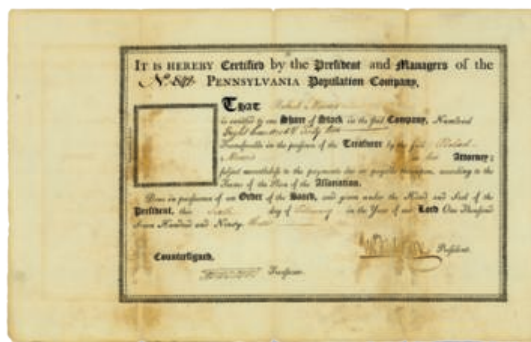 It is hereby Certified by the President and Managers of the
No. Pennsylvania Population Company,
That Robert Morris
is entitled to one Share of Stock in the said Company, Numbered
Eight hundred & forty
Transferable in the presence of the Treasurer by the said Robert
Morris or his Attorney;
subject nevertheless to the payments due or payable thereupon, according to the
Terms of the Plan of the Association.
Done in pursuance of an Order of the Board, and given under the Hand and Seal of the
President, this day of February in the Year of our Lord One Thousand
Seven Hundred and Ninety three
President.
Countersigned,
Treasurer.